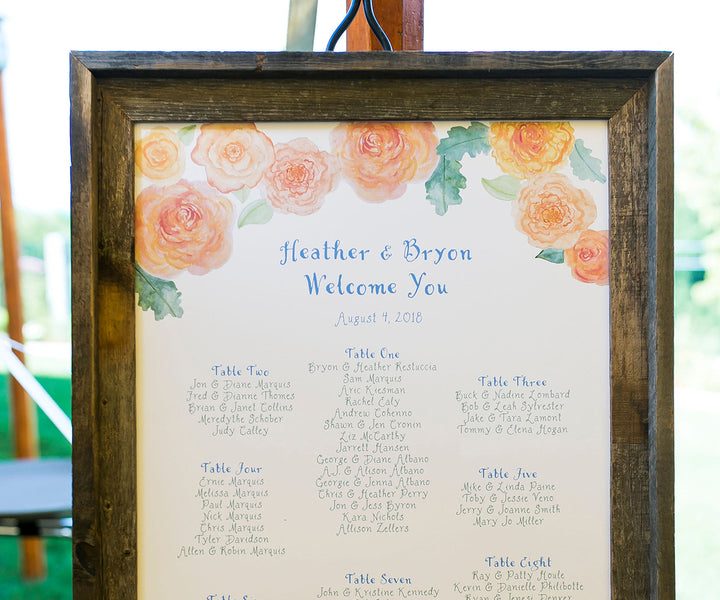 Heather & Bryon
Welcome You
August 4, 2018
Table One
Bryon & Heather Restuccia
Sam Marquis
Aric Kiesman
Rachel Ealy
Andrew Cohenno
Shawn & Jen Cronin
Liz McCarthy
Jarrett Hansen
George & Diane Albano
A.J. & Alison Albano
Georgie & Jenna Albano
Chris & Heather Perry
Jon & Jess Byron
Kara Nichols
Allison Zellers
Table Two
Jon & Diane Marquis
Fred & Dianne Thomes
Brian & Janet Collins
Meredythe Schober
Judy Talley
Table Three
Buck & Nadine Lombard
Bob & Leah Sylvester
Jake & Tara Lamont
Tommy & Elena Hogan
Table Four
Ernie Marquis
Melissa Marquis
Paul Marquis
Nick Marquis
Chris Marquis
Tyler Davidson
Allen & Robin Marquis
Table Five
Mike & Linda Paine
Toby & Jessie Veno
Jerry & Joanne Smith
Mary Jo Miller
Table Six
Table Seven
John & Kristine Kennedy
Table Eight
Ray & Patty Houle
Kevin & Danielle Philibotte
Ryan & Denver